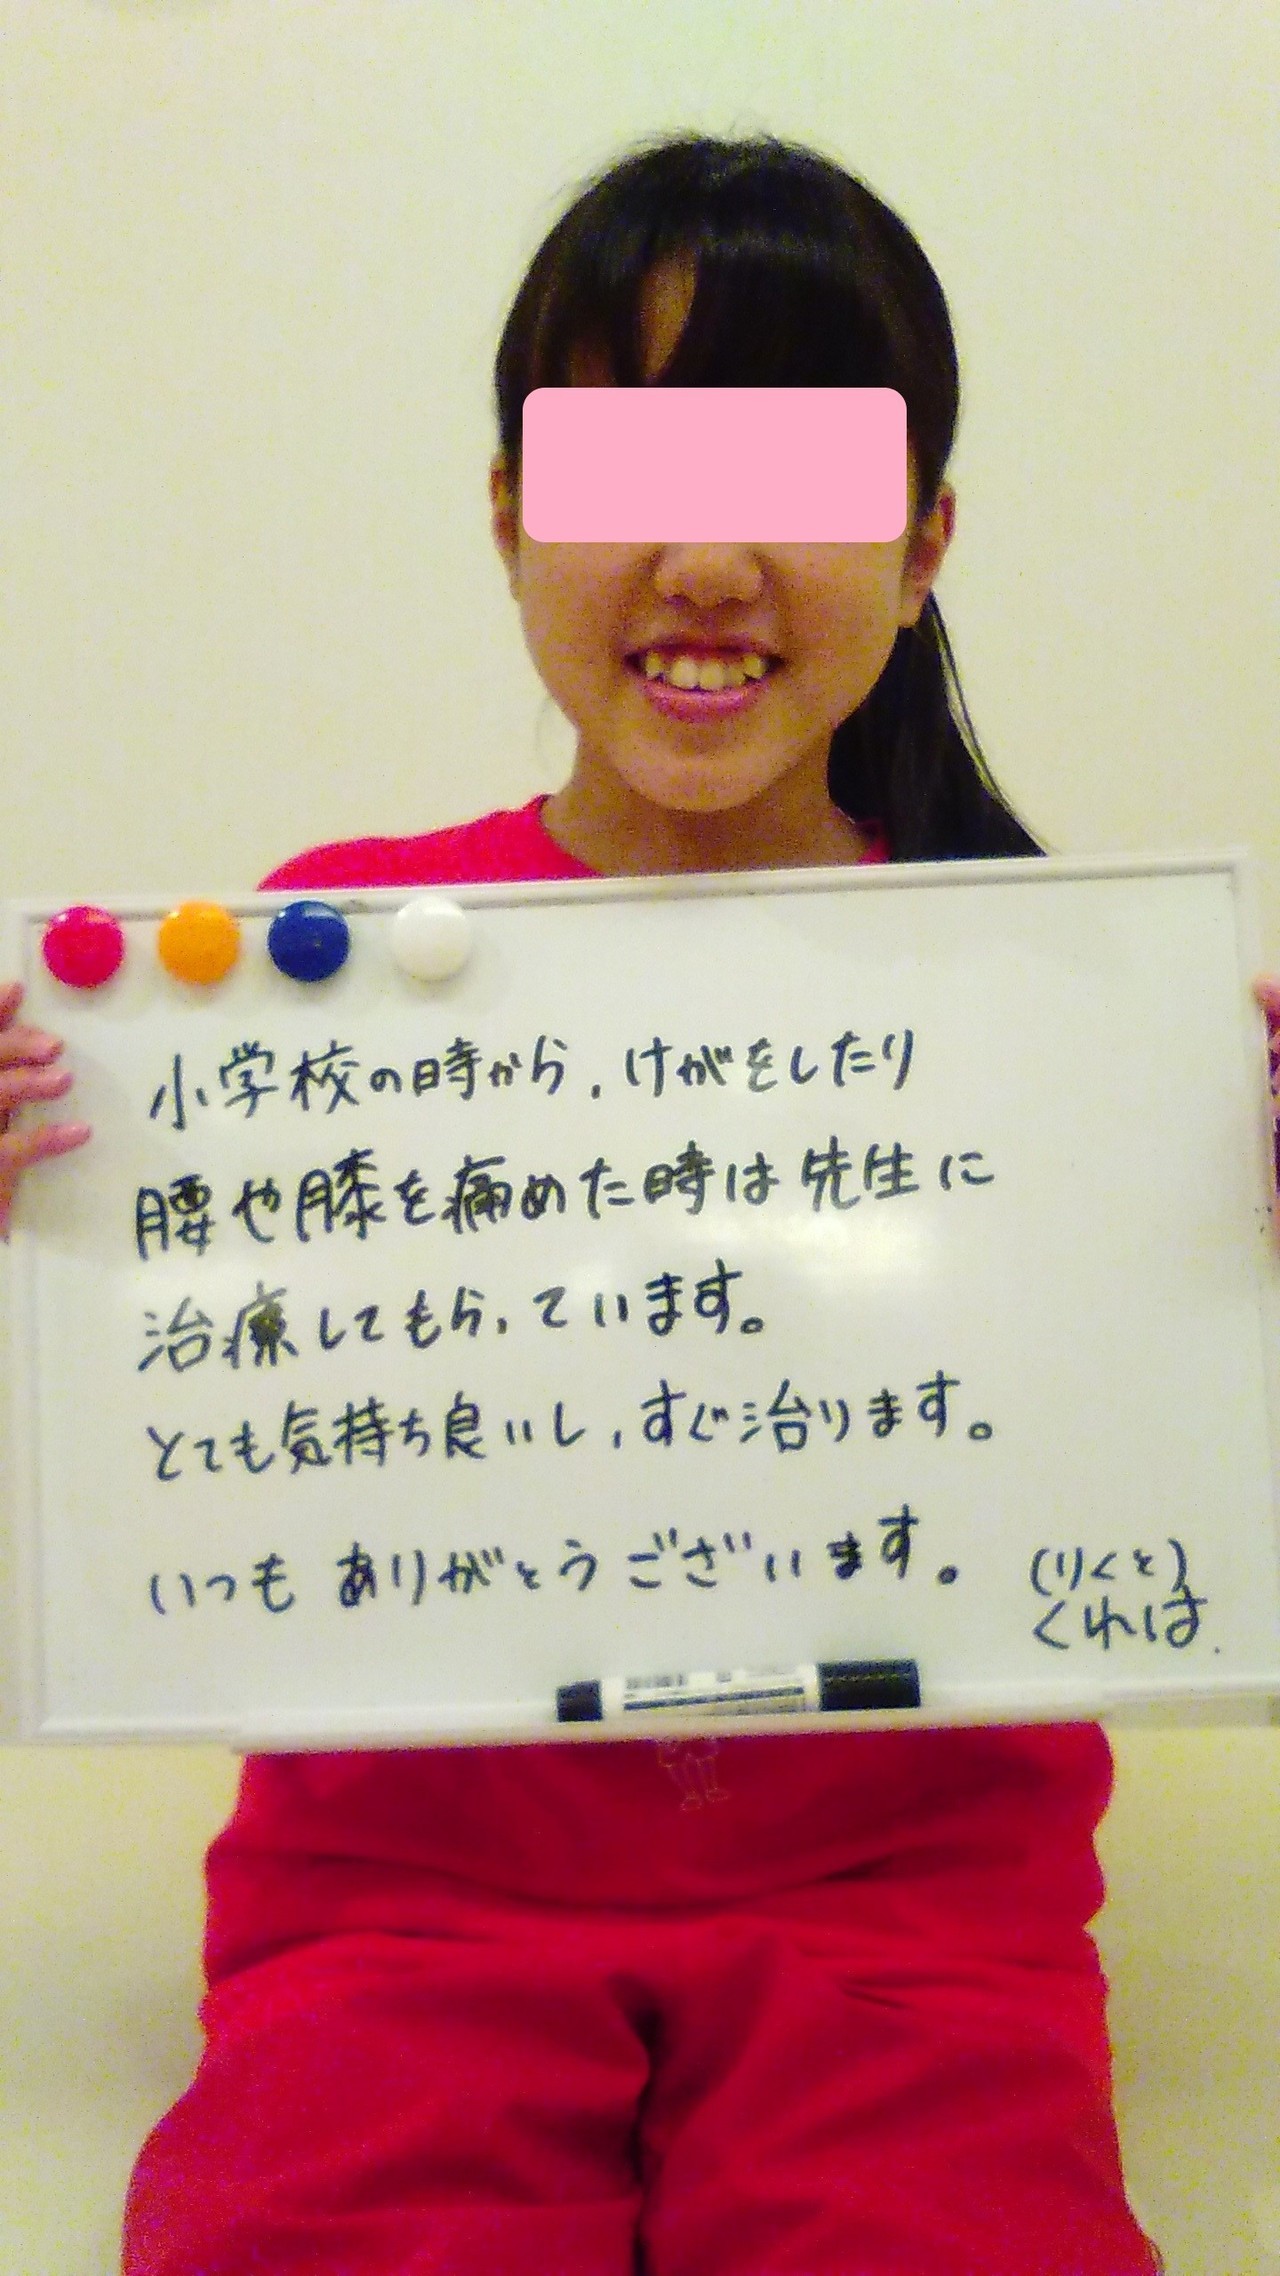 小学校の時から、けがをしたり
腰や膝を痛めた時は先生に
治療してもらっています。
とても気持ち良いし、すぐ治ります。
いつもありがとうございます。
(りくと)
くれは